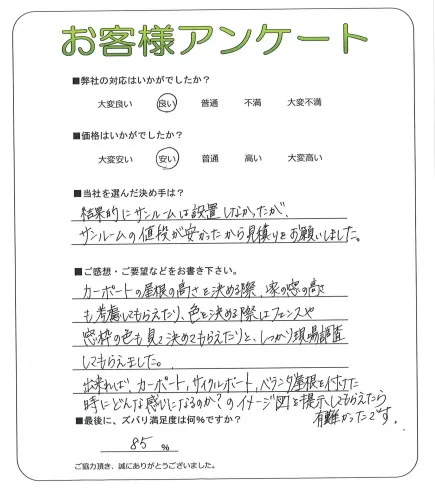 お客様アンケート
■弊社の対応はいかがでしたか？
大変良い 良い 普通 不満 大変不満
■価格はいかがでしたか？
大変安い 安い 普通 高い 大変高い
■当社を選んだ決め手は？
結果的にサンルームは設置しなかったが、
サンルームの値段が安かったから見積りをお願いしました。
■ご感想・ご要望などをお書き下さい。
カーポートの屋根の高さを決める際、家の窓の高さ
も考慮してもらえたり、色を決める際はフェンスや
窓枠の色も見て決めてもらえたりと、しっかり現場調査
してもらえました。
出来れば、カーポート、サイクルポート、ベランダ屋根を付けた
時にどんな感じになるのか？のイメージ図を提示してもらえたら
有難かったです。
■最後に、ズバリ満足度は何%ですか？
85 %
ご協力頂き、誠にありがとうございました。